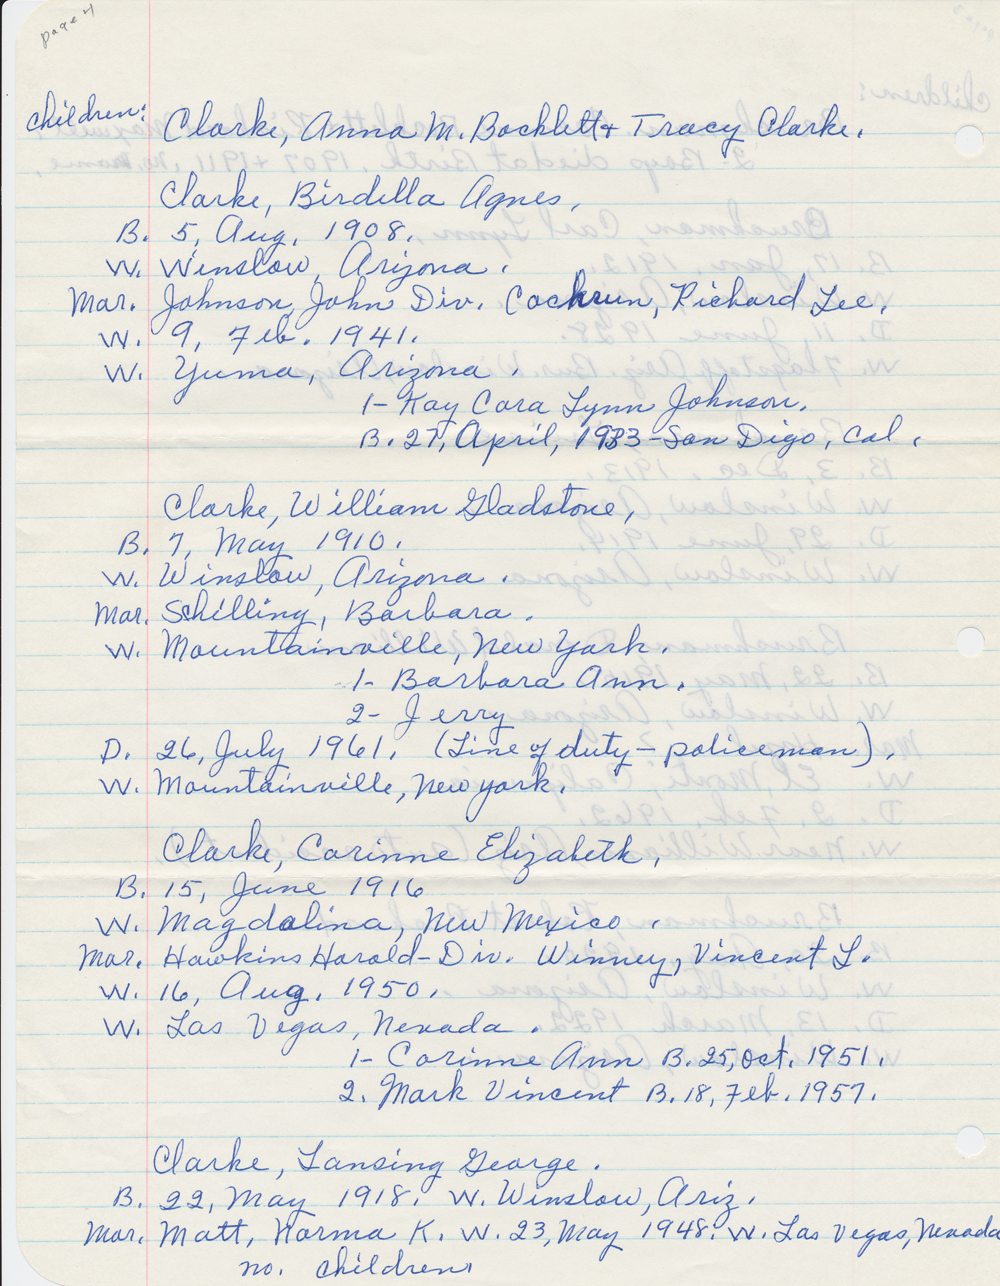 page 4
children: Clarke, Anna M. Bocklett + Tracy Clarke.
Clarke, Birdella Agnes,
B. 5, Aug, 1908.
W. Winslow, Arizona.
Mar. Johnson, John Div. Cochrun, Richard Lee.
W. 9, Feb. 1941.
W. Yuma, Arizona.
1- Kay Cara Lynn Johnson.
B. 27, April, 1933-San Digo, Cal.
Clarke, William Gladstone,
B. 7, May 1910.
W. Winslow, Arizona.
Mar. Schilling, Barbara.
W. Mountainville, New York.
1- Barbara Ann.
2- Jerry
D. 26, July 1961. (Line of duty- policeman).
W. Mountainville, New york.
Clarke, Corinne Elizabeth,
B. 15, June 1916
W. Magdalina, New Mexico.
Mar. Hawkins Harold-Div. Winney, Vincent L.
W. 16, Aug. 1950.
W. Las Vegas, Nevada.
1- Corinne Ann B. 25, Oct. 1951.
2. Mark Vincent B. 18, Feb. 1957.
Clarke, Lansing George.
B. 22, May 1918. W. Winslow, Ariz.
Mar. Matt, Norma K. W. 23, May 1948. W. Las Vegas, Nevada
no. children.